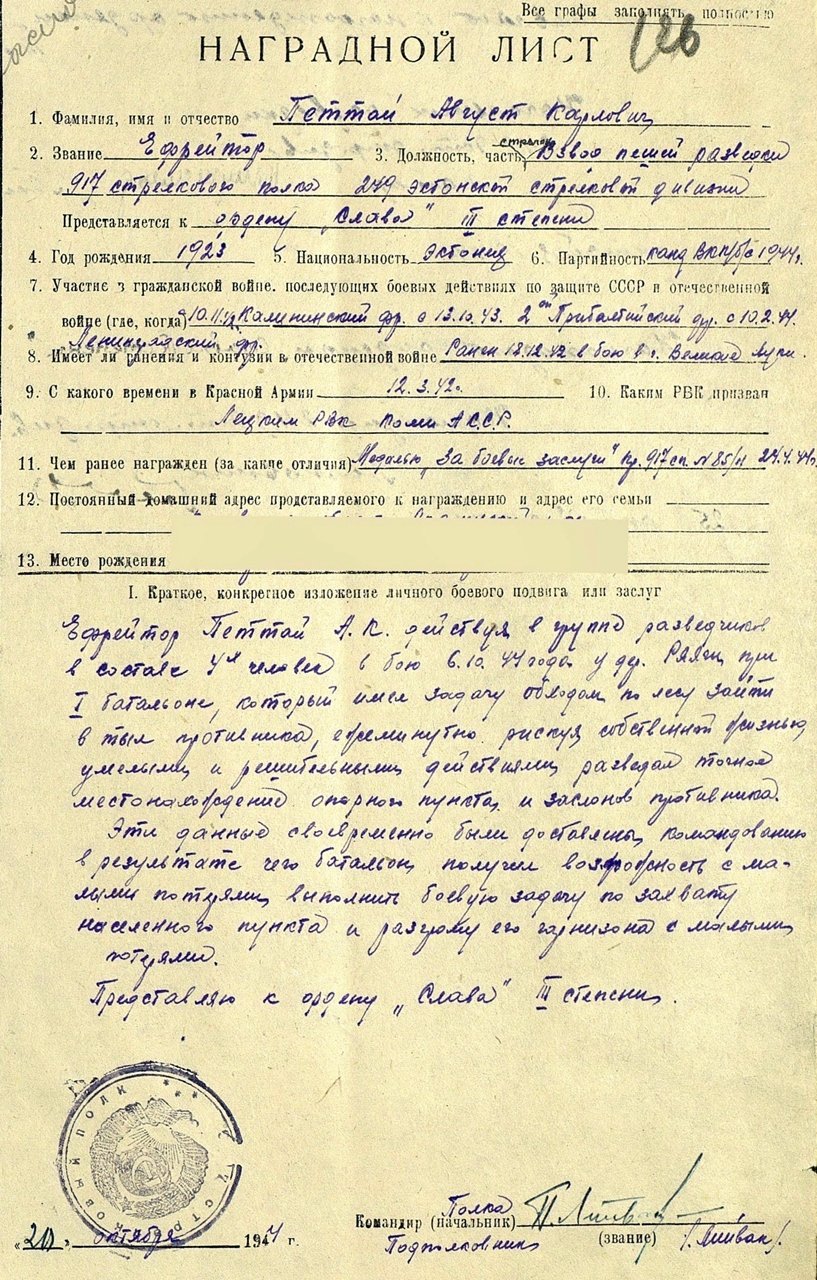 Все графы заполнять полностью
126
НАГРАДНОЙ ЛИСТ
1. Фамилия, имя и отчество Петтай Август Карлович
2. Звание Ефрейтор 3. Должность, часть стрелок Взвод пешей разведки
917 стрелкового полка 249 эстонской стрелковой дивизии
Представляется к ордену „Слава" III степени
4. Год рождения 1923 5. Национальность Эстонец 6. Партийность канд ВКП/б/ с 1944г.
7. Участие в гражданской войне. последующих боевых действиях по защите СССР и отечественной
войне (где, когда) с 10.11.42 Калининский фр. с 13.10.43. 2ой Прибалтийский фр. с 10.2.44.
Ленинградский фр.
8. Имеет ли ранения и контузии в отечественной войне Ранен 18.12.42 в бою в г. Великие Луки.
9. С какого времени в Красной Армии 12.3.42г. 10. Каким РВК призван
РВК Коми АССР.
11. Чем ранее награжден (за какие отличия) Медалью „За боевые заслуги" Пр. 917 сп. №85/н 24.4.44г.
12. Постоянный домашний адрес продставляемого к награждению и адрес его семьи
13. Место рождения
I. Краткое, конкретное изложение личного боевого подвига или заслуг
Ефрейтор Петтай А. К. действуя в группе разведчиков
в составе 4х человек в бою 6.10.44 года у дер. при
I батальоне, который имел задачу обходом по лесу зайти
в тыл противника, ежеминутно рискуя собственной жизнью,
умелыми и решительными действиями разведал точное
местонахождение опорного пункта и заслонов противника.
Эти данные своевременно были доставлены командованию
в результате чего батальон получил возможность с ма-
лыми потерями выполнить боевую задачу по захвату
населенного пункта и разгрому его гарнизона с малыми
потерями.
Представляю к ордену „Слава" III степени.
Полка
Командир (начальник)
Подполковник (звание)
„20" октября 1944 г.